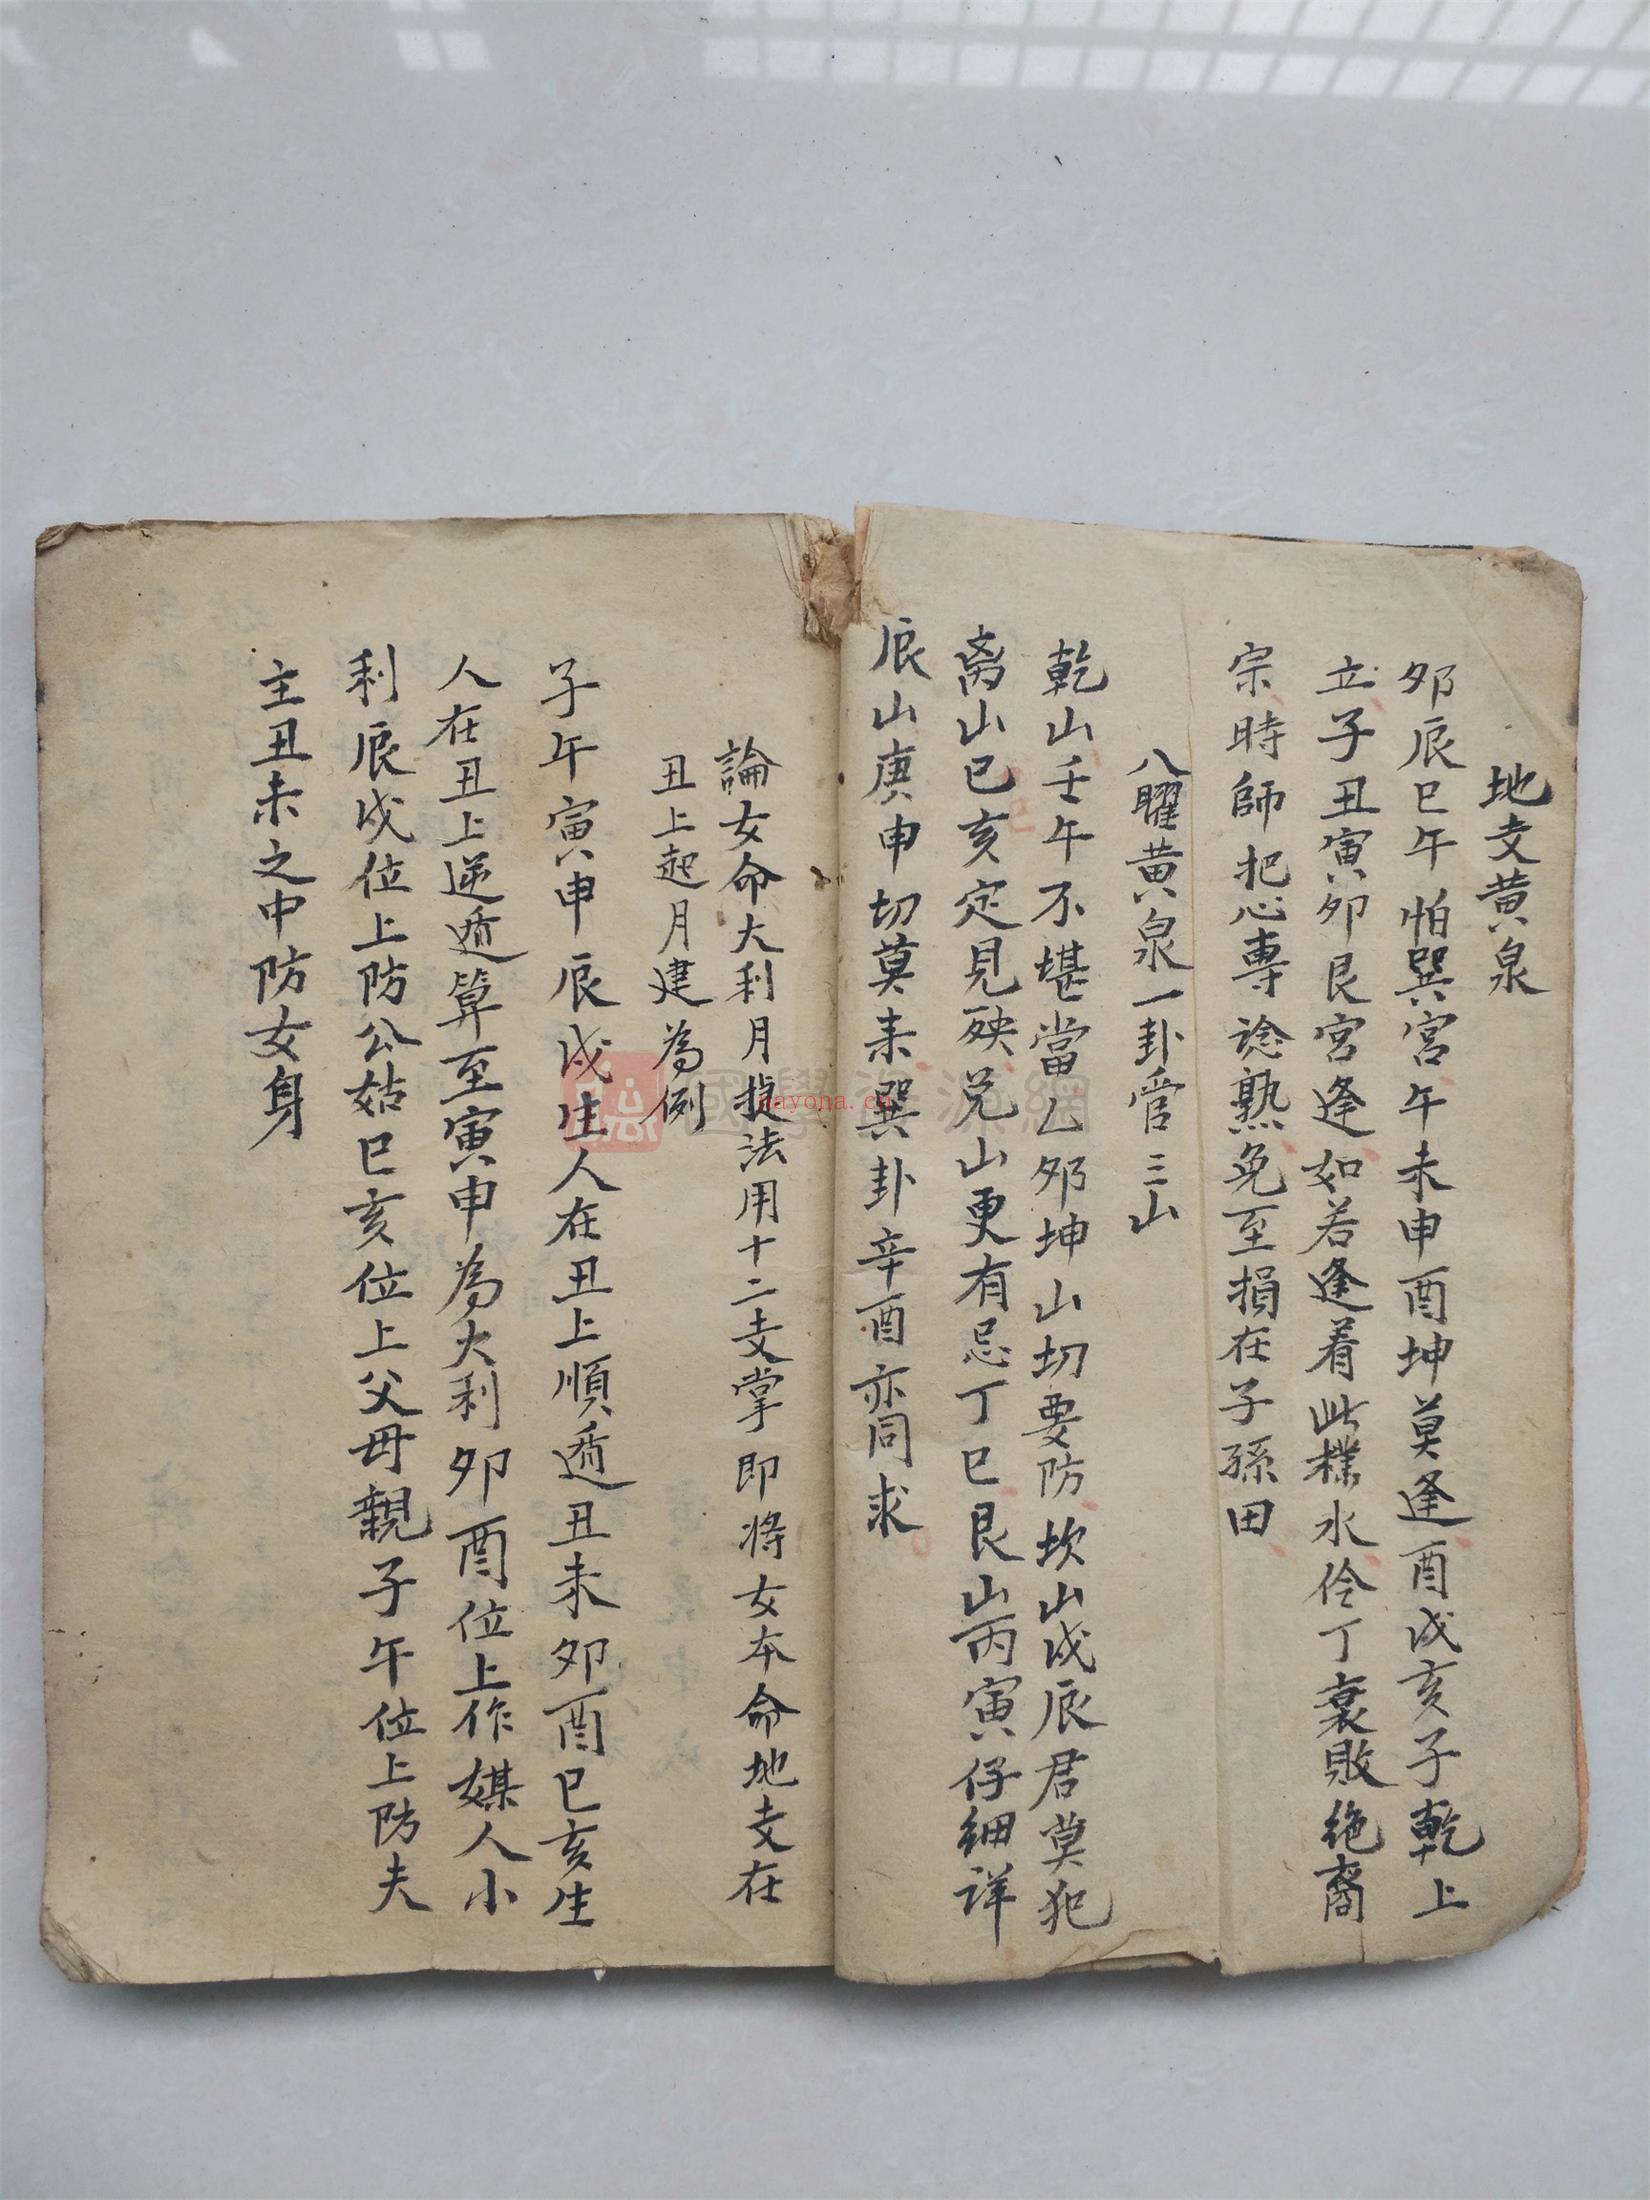 地支黃泉
卯辰巳午怕巽宮午未申酉坤莫逢酉戌亥子乾上
立子丑寅卯艮宮逢如若逢着此水伶丁衰敗絶裔
宗時師把心專諗熟免至損在子孫田
八曜黃泉一卦管三山
乾山壬午不堪當乙卯坤山切要防坎山戌辰君莫犯
离山巳亥定見殃兑山更有忌丁巳艮山丙寅仔細詳
辰山庚申切莫来巽卦辛酉亦同求
論女命大利月捷法用十二支掌即将女本命地支在
丑上起月建為例
子午寅申辰戌生人在丑上順遁丑未卯酉巳亥生
人在丑上逆遁算至寅申為大利卯酉位上作媒人小
利辰戌位上防公姑巳亥位上父母親子午位上防夫
主丑未之中防女身
nayona.cn